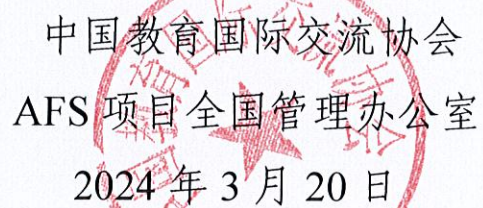 中国教育国际交流协会
AFS 项目全国管理办公室
2024 年 3 月 20 日